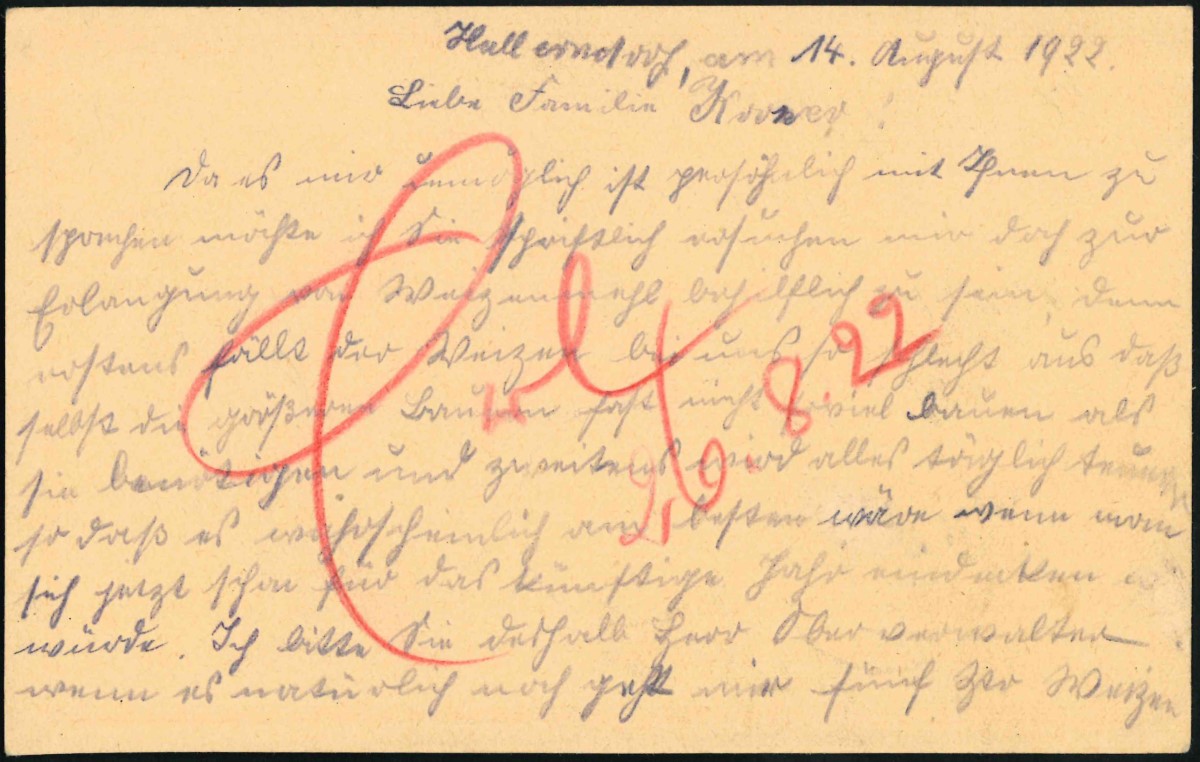 am 14. August 1922.
Liebe Familie Korner!
Da es mir unmöglich ist persöhnlich mit Ihnen zu
sprechen möchte ich Sie schriftlich ersuchen mir doch zur
Erlangung von Weizenmehl behilflich zu sein, denn
erstens fällt der Weizen bei uns so schlecht aus daß
selbst die größeren Bauern fast nicht soviel bauen als
sie benötigen und zweitens wird alles täglich teurer
so daß es wahrscheinlich am besten wäre wenn man
sich jetzt schon für das künftige Jahr eindecken
würde. Ich bitte Sie deshalb Herr Oberverwalter
wenn es natürlich noch geht mir fünf Ztr Weizen
8. 22